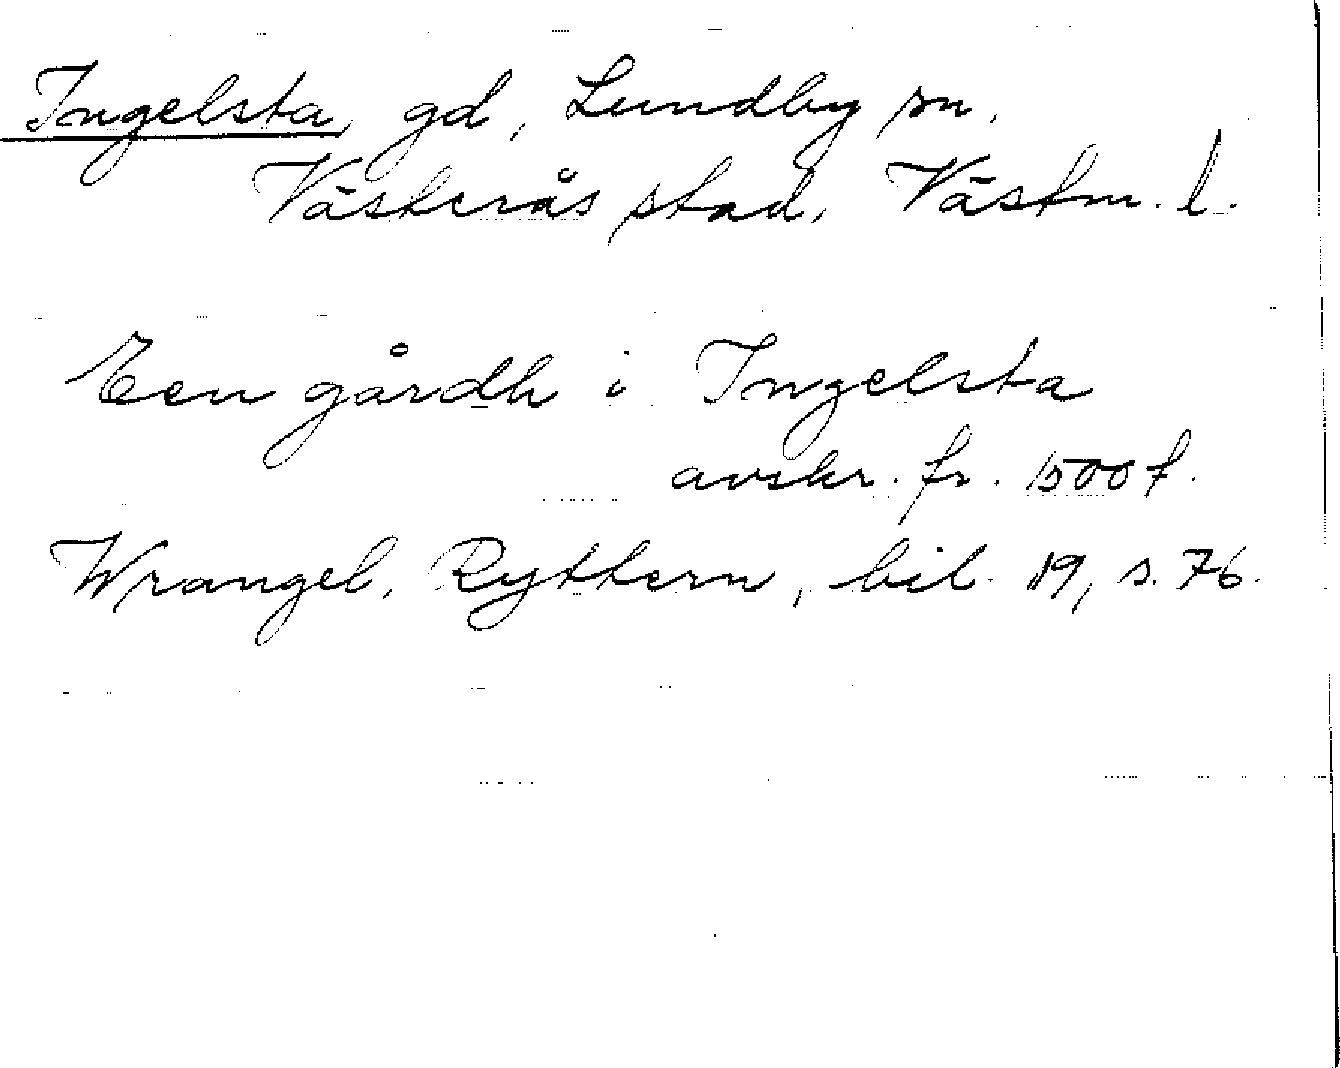 Ingelsta, gd, Lundby sn.
Västerås stad, Västm. l.
Een gårdh i Ingelsta
avskr. fr. 1500 t.
Wrangel, Ryttern, bil. 19, s. 76.